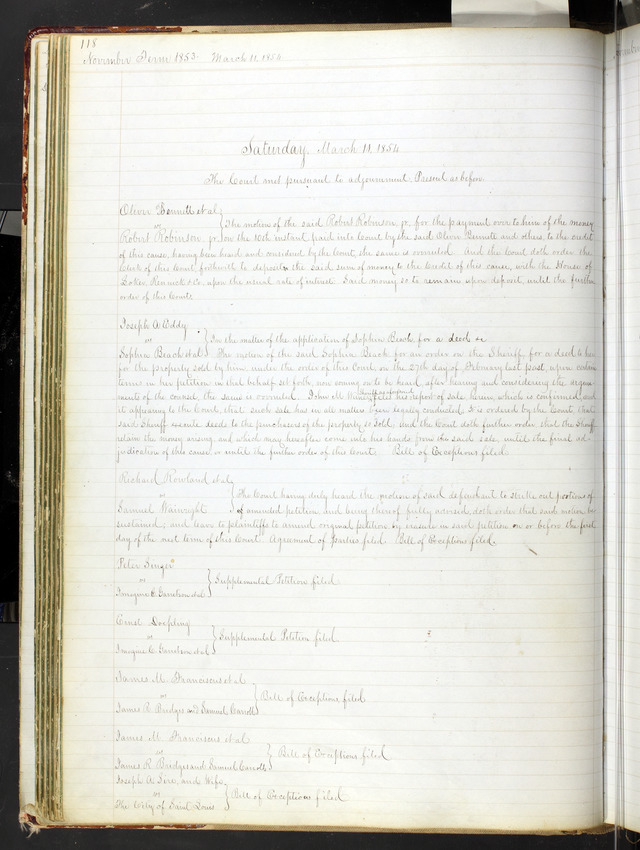 118
November Term 1853. March 11, 1854
Saturday, March 11, 1854
The Court met pursuant to adjournment. Present as before
Oliver Bennett et al
vs
The motion of the said Robert Robinson, jr, for the payment over to him of the money
Robert Robinson, jr. on the 10th instant paid into Court by the said Oliver Bennett and others, to the credit
of this cause, having been heard and considered by the Court, the same is overruled. And the Court doth order the
Clerk of this Court forthwith to deposit the said sum of money to the credit of this cause, with the House of
Loker, Renick & Co, upon the usual rate of interest. Said money so to remain upon deposit, until the further
order of this Court.
Joseph A. Eddy
vs
In the matter of the application of Sophia Beach, for a deed &c
Sophia Beach et al The motion of the said Sophia Beach for an order on the Sheriff for a deed to her
for the property sold by him under the order of this Court, on the 27th day of February last past, upon certain
terms in her petition in that behalf set forth, now coming on to be heard, after hearing and considering the argu-
ments of the counsel, the same is overruled. John M. this report of sale herein, which is confirmed, and
it appearing to the Court, that such sale has in all matters been legally conducted, It is ordered by the Court, that
said Sheriff execute deeds to the purchasers of the property so sold. And the Court doth further order that the Sheriff
retain the money arising, and which may hereafter come into his hands from said sale, until the final ad-
judication of this cause or until the further order of this Court. Bill of Exceptions filed
Richard Rowland et al
vs
The Court having duly heard the motion of said defendant to strike out portions of
Samuel Wainright of amended petition and being thereof fully advised, doth order that said motion be
sustained; and leave to plaintiffs to amend original petition by in said petition on or before the first
day of the next term of this Court. Agreement of parties filed. Bill of Exceptions filed.
Peter Singer
vs
Supplemental Petition filed
Imogine C. Garretson et al
Ernst
vs
Supplemental Petition filed
Imogine C. Garretson et al
James M. Franciscus et al
vs
Bill of Exceptions filed
James R. Bridges and Samuel Carroll
James M. Franciscus et al
vs
Bill of Exceptions filed
James R. Bridges and Samuel Carroll
Joseph A. and Wife
vs
Bill of Exceptions filed
The City of Saint Louis